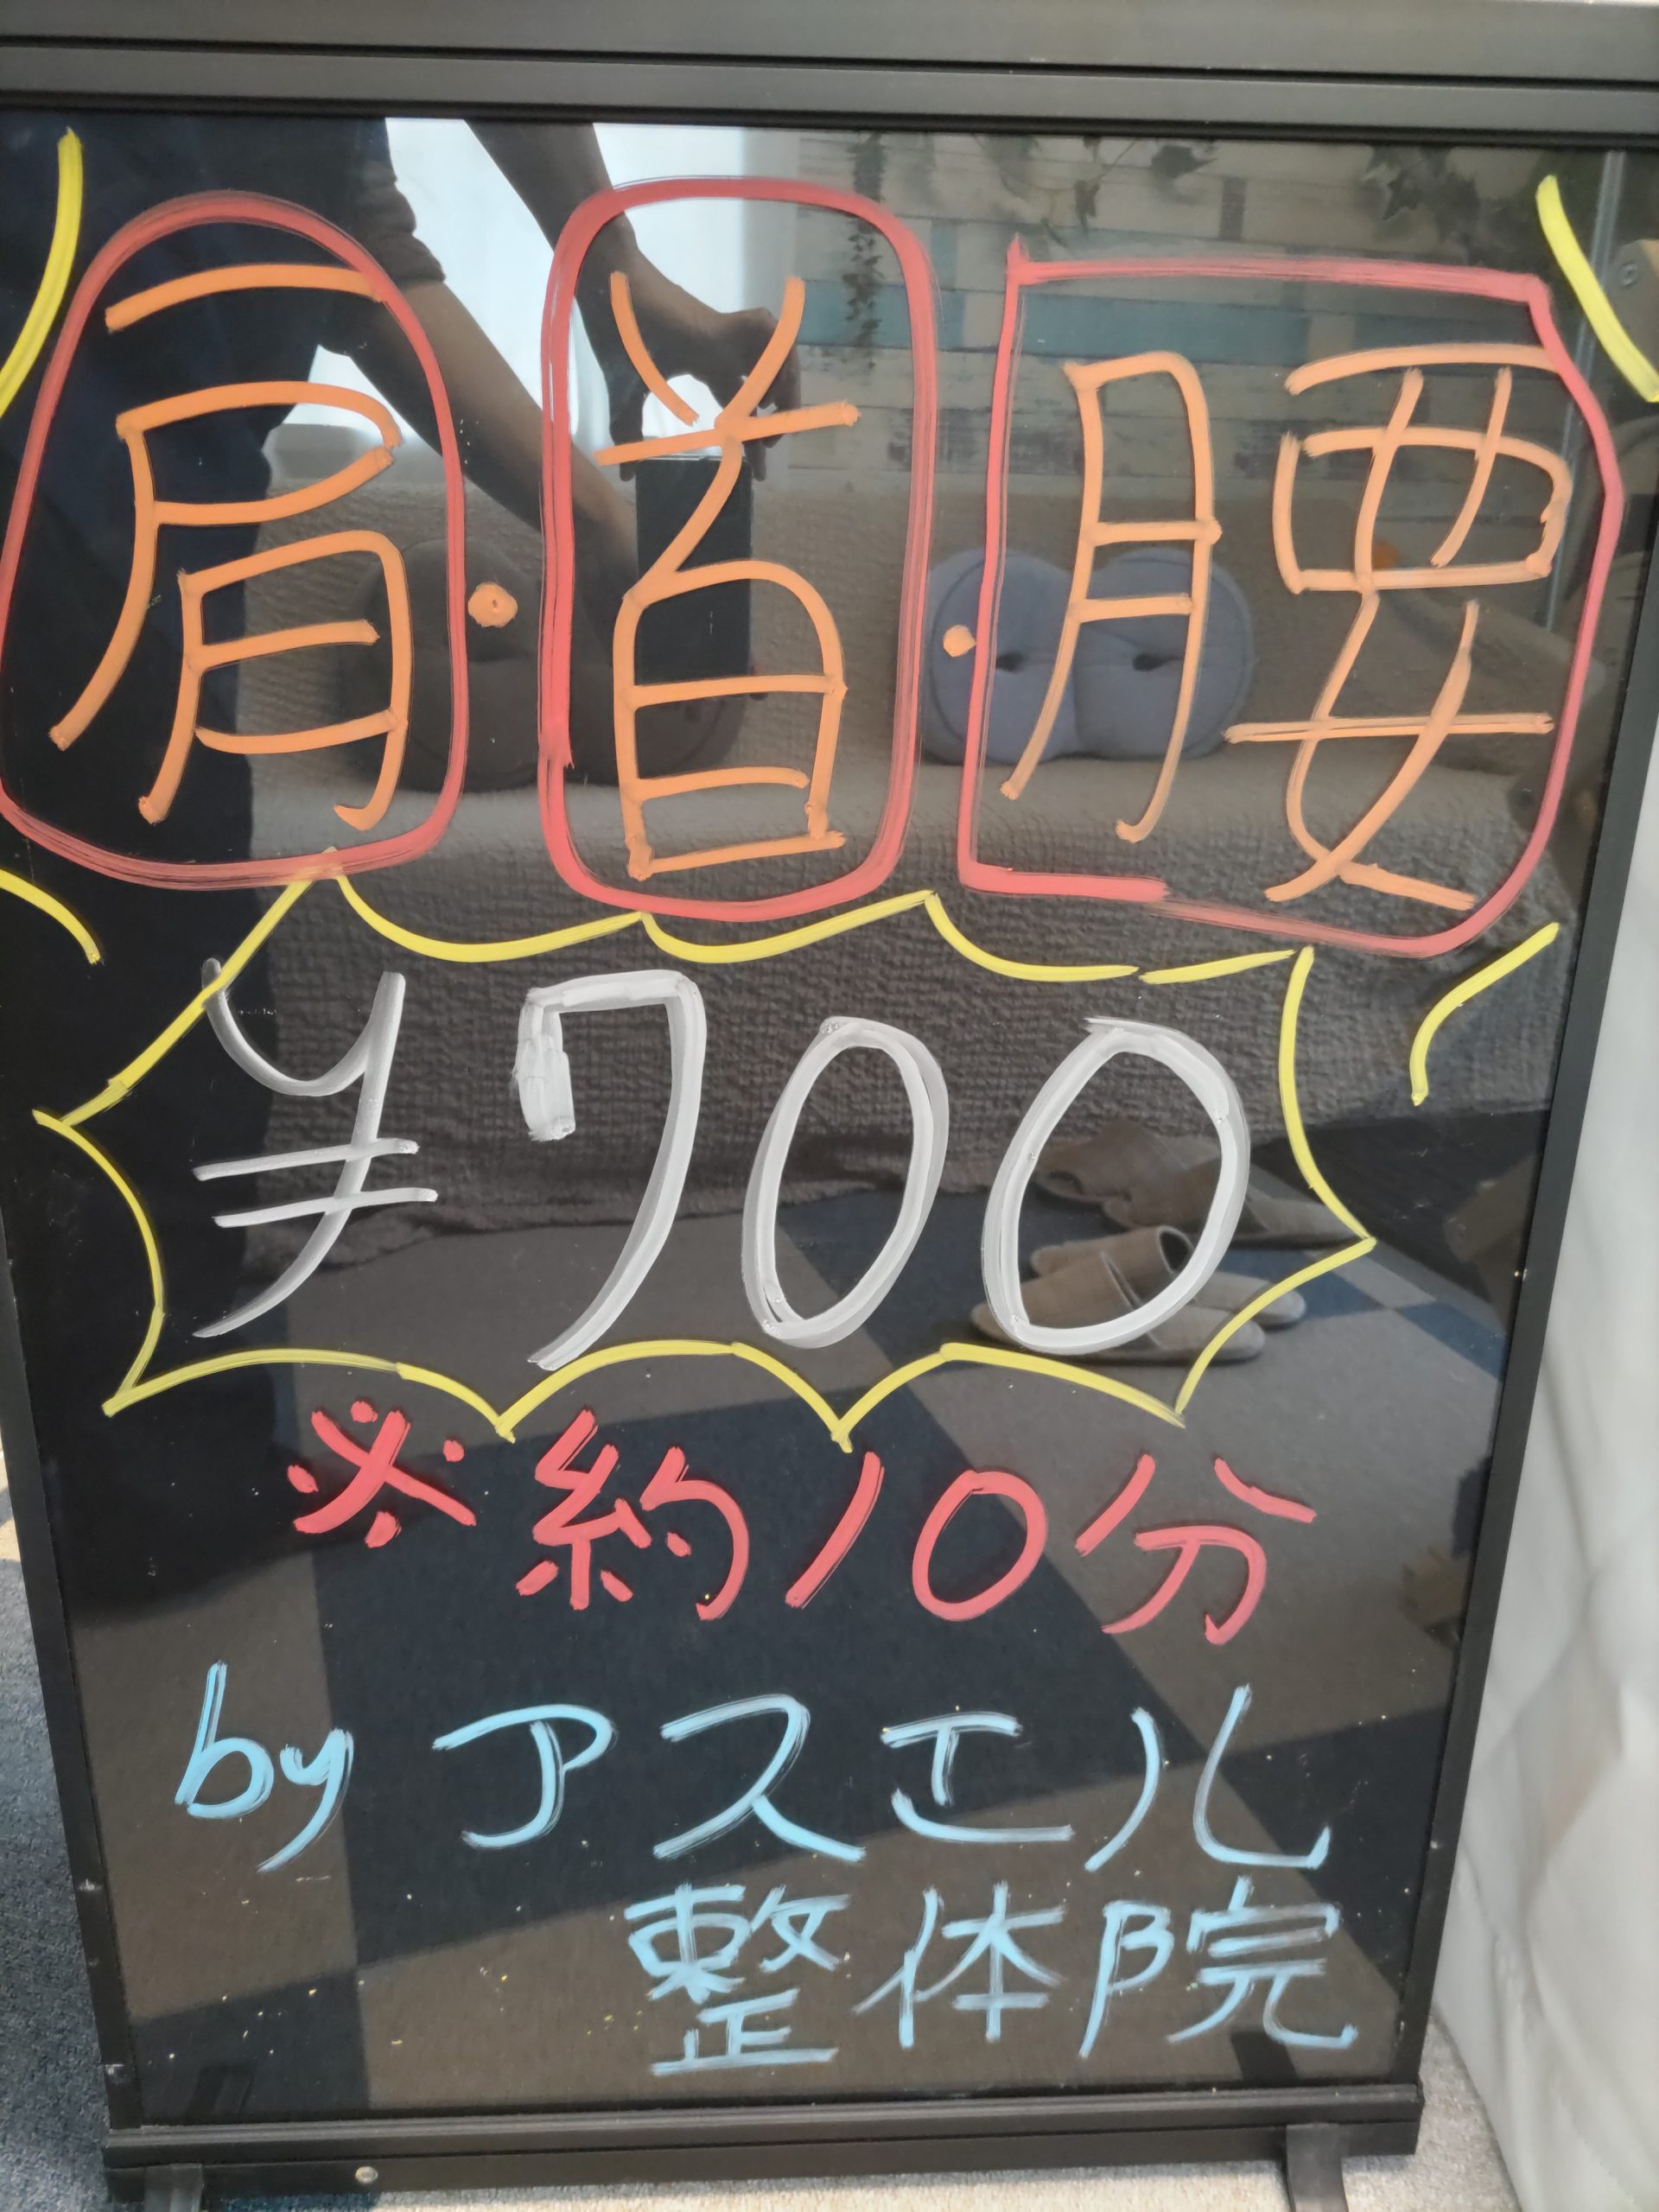 肩・首・腰
¥700
※約10分
by アスエル
整体院